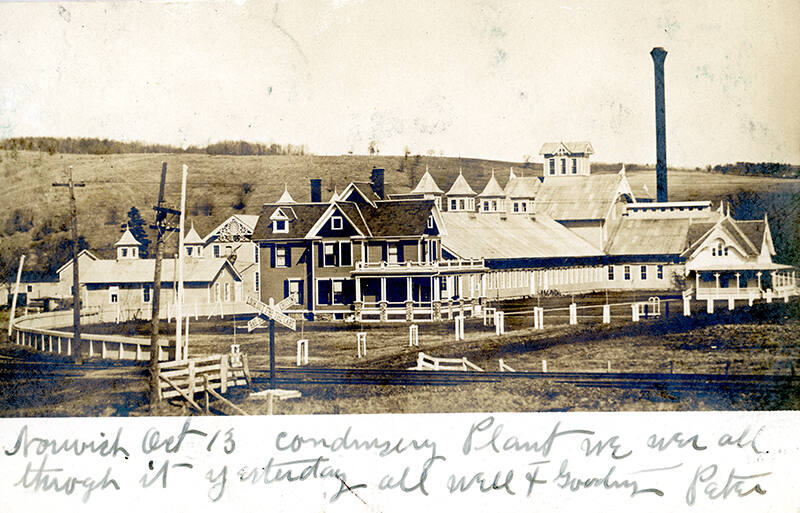 Norwich Oct 13 condensery Plant we wer all
throgh it yesterday all well & Peter